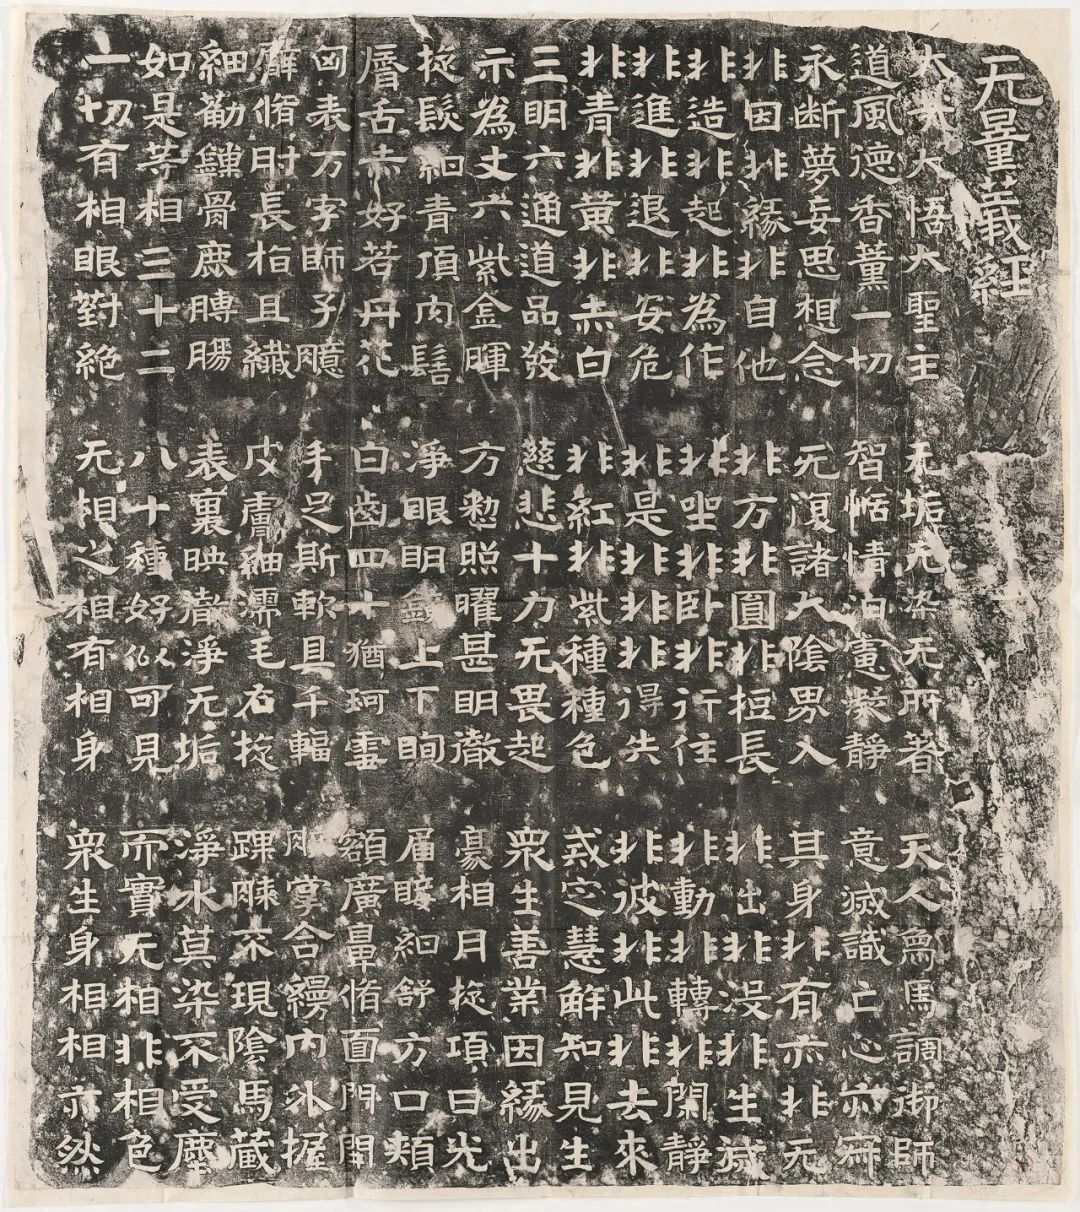 无量義經
大哉大悟大聖主 无垢无染无所著 天人象馬調御師
道風德香薰一切 智恬情泊慮凝靜 意滅識亡心亦寂
永断夢妄思想念 无復諸大陰界入 其身非有亦非无
非因非緣非自他 非方非圓非短長 非出非没非生滅
非造非起非為作 非坐非卧非行住 非動非轉非閑靜
非進非退非安危 非是非非非得失 非彼非此非去來
非青非黄非赤白 非紅非紫種種色 戒定慧解知見生
三明六通道品發 慈悲十力无畏起 衆生善業因緣出
示為丈六紫金暉 方整照曜甚明徹 豪相月旋項日光
旋髮紺青頂肉髻 淨眼明鏡上下眴 眉睫紺舒方口頰
脣舌赤好若丹花 白齒四十猶珂雪 額廣鼻脩面門開
匈表万字師子臆 手足斯軟具千輻 腋掌合縵内外握
臂脩肘長指且纖 皮膚細濡毛右旋 踝膝不現陰馬藏
細筋鏁骨鹿膊腸 表裏映徹淨无垢 淨水莫染不受塵
如是等相三十二 八十種好似可見 而實无相非相色
一切有相眼對絶 无相之相有相身 衆生身相相亦然